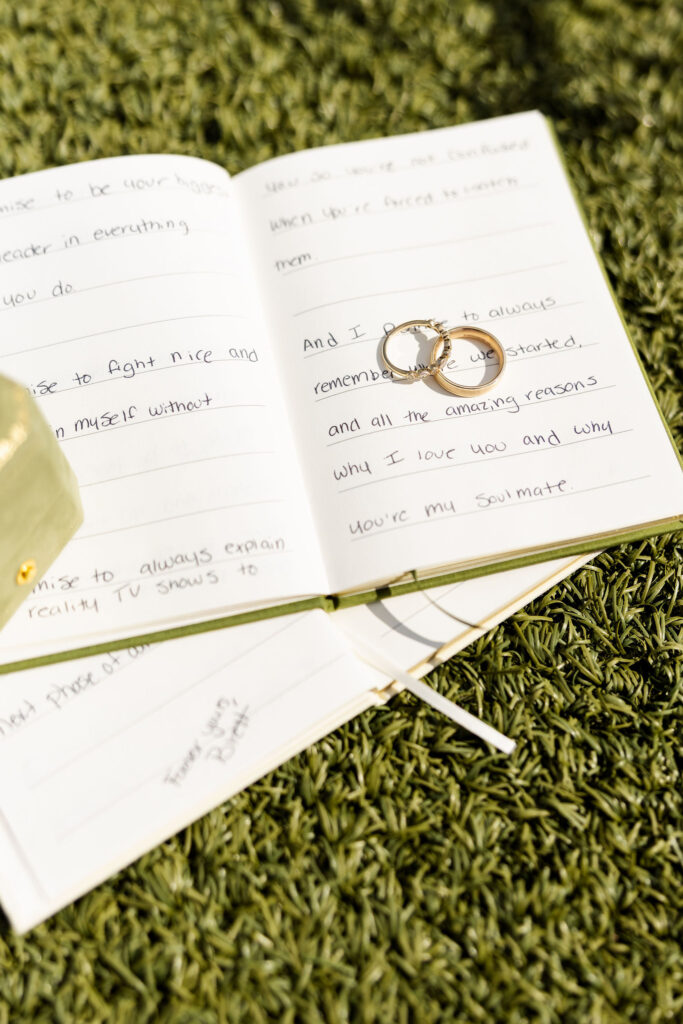 mise to be your biggest
leader in everything
you do.
mise to fight nice and
in myself without
mise to always explain
reality TV shows to
you so you're not confused
when you're forced to watch
mem.
And I to always
remember we started,
and all the amazing reasons
why I love you and why
you're my soulmate.
next phase of
Forever yours,